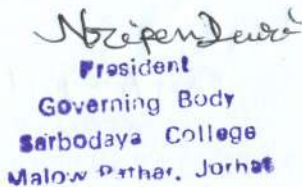 President
Governing Body
Sarbodaya College
Malow Pathar, Jorhat